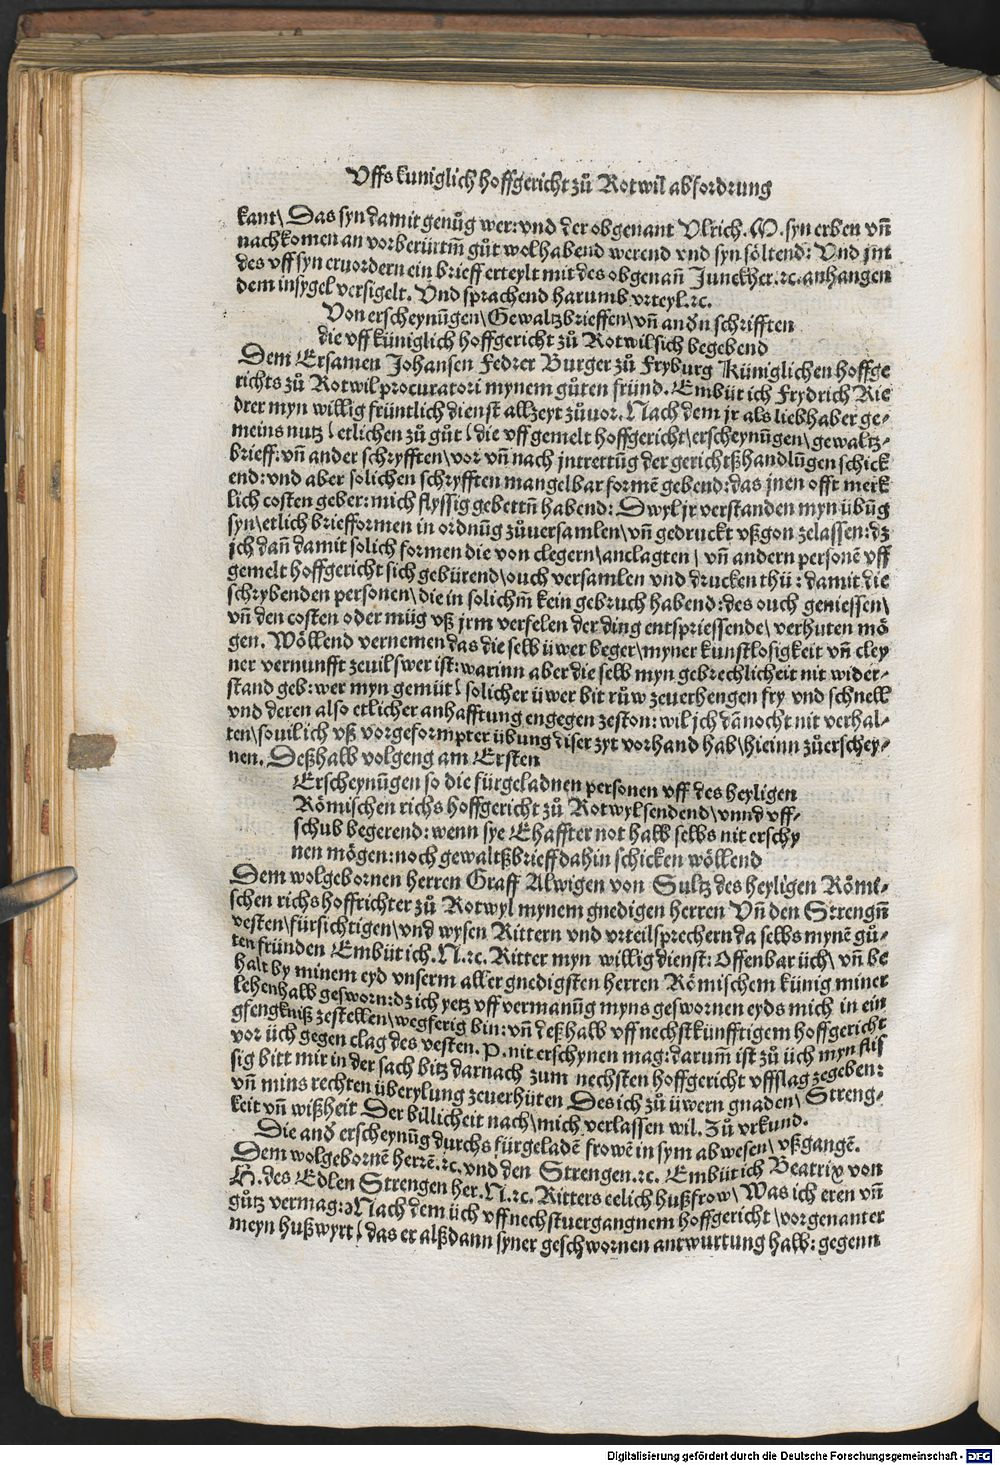 Uffs kuniglich hoffgericht zů Rotwil abfordrung
kant\ Das syn damit genůg wer: vnd der obgenant Vlrich. M. syn erben vn̄
nachkomen an vorberürtm̄ gůt wol habend werend vnd syn söltend: Vnd jm
des vff syn eruordern ein brieff erteylt mit des obgenan̄ Junckher. ꝛc. anhangen
dem insygel versigelt. Vnd sprachend harumb vrteyl. ꝛc.
Von erscheynūgen\ Gewaltzbrieffen\ vn̄ andn̄ schrifften
die vff küniglich hoffgericht zů Rotwil sich begebend
Dem Ersamen Johansen Fedrer Burger zů Fryburg Küniglichen hoffge
richts zů Rotwil procuratori mynem gůten fründ. Embüt ich Frydrich Rie
drer myn willig früntlich dienst allzeyt zůuor. Nach dem jr als liebhaber ge⸗
meins nutz\ etlichen zů gůt\ die vff gemelt hoffgericht\ erscheynūgen\ gewaltz⸗
brieff: vn̄ ander schryfften\ vor vn̄ nach jntrettūg der gerichtßhandlūgen schick
end: vnd aber solichen schryfften mangelbar formē gebend: das jnen offt merk
lich costen geber: mich flyssig gebettn̄ habend: Dwyl jr verstanden myn übūg
syn\ etlich briefformen in ordnūg zůuersamlen\ vn̄ gedruckt vßgon zelassen: dz
jch dan̄ damit solich formen die von clegern\ anclagten\ vn̄ andern personē vff
gemelt hoffgericht sich gebürend\ ouch versamlen vnd drucken thü: damit die
schrybenden personen\ die in solichm̄ kein gebruch habend: des ouch geniessen\
vn̄ den costen oder müg vß jrm verfelen der ding entspriessende\ verhuten mö
gen. Wöllend vernemen das die selb üwer beger\ myner kunstlosigkeit vn̄ cley
ner vernunfft zeuil swer ist: warinn aber die selb myn gebrechlicheit nit wider⸗
stand geb: wer myn gemüt\ solicher üwer bit růw zeuerhengen fry vnd schnell
vnd deren also etlicher anhafftung engegen zeston: wil jch dānocht nit verhal⸗
ten\ souil ich vß vorgeformpter übung diser zyt vorhand hab\ hieinn zůerschey⸗
nen. Deßhalb volgeng am Ersten
Erscheynūgen so die fürgeladnen personen vff des heyligen
Römischen richs hoffgericht zů Rotwyl sendend\ vnnd vff⸗
schub begerend: wenn sye Ehaffter not halb selbs nit erschy
nen mögen: noch gewaltßbrieff dahin schicken wöllend
Dem wolgebornen herren Graff Alwigen von Sultz des heyligen Römi⸗
schen richs hoffrichter zů Rotwyl mynem gnedigen herren Vn̄ den Strengn̄
vesten\ fürsichtigen\ vnd wysen Rittern vnd vrteilsprechern da selbs mynē gů⸗
ten fründen Embüt ich. N. ꝛc. Ritter myn willig dienst: Offenbar üch\ vn̄ be
halt by minem eyd vnserm aller gnedigsten herren Römischem künig miner
lehenhalb gesworn: dz ich yetz vff vermanūg myns geswornen eyds mich in ein
gfengkniß zestellen\ wegferig bin: vn̄ deßhalb vff nechstkünfftigem hoffgericht
vor üch gegen clag des vesten. P. nit erschynen mag: darum̄ ist zů üch myn flis
sig bitt mir in der sach bitz darnach zum nechsten hoffgericht vffslag zegeben:
vn̄ mins rechten überylung zeuerhüten Des ich zů üwern gnaden\ Streng⸗
keit vn̄ wißheit Der billicheit nach\ mich verlassen wil. Zů vrkund.
Die and erscheynūg durchs fürgeladē frowē in sym abwesen\ vßgangē.
Dem wolgebornē herrē. ꝛc. vnd den Strengen. ꝛc. Embüt ich Beatrix von
H. des Edlen Strengen her. N. ꝛc. Ritters eelich hußfrow\ Was ich eren vn̄
gůtz vermag: Nach dem üch vff nechstuergangnem hoffgericht\ vorgenanter
meyn hußwyrt\ das er alßdann syner geschwornen antwurtung halb: gegenn
Digitalisierung gefördert durch die Deutsche Forschungsgemeinschaft - DFG